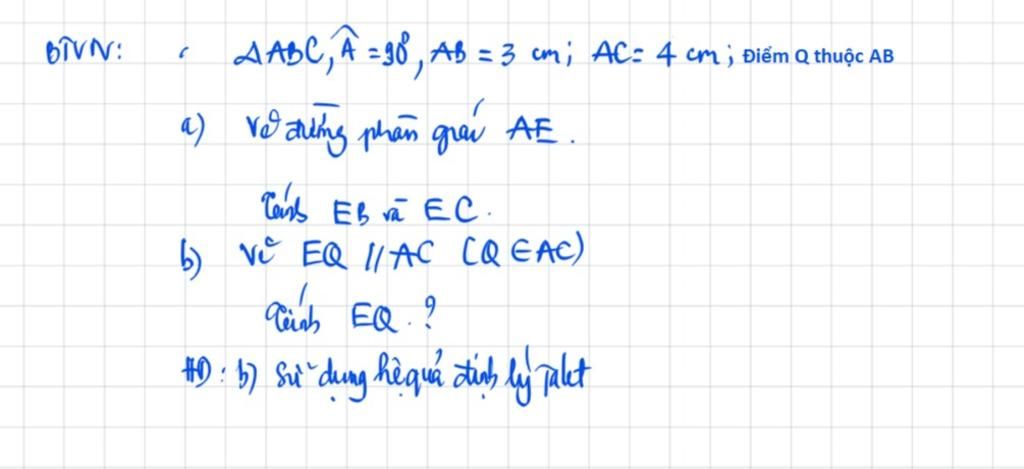 BTVN: ΔABC, Â = 90°, AB = 3 cm; AC = 4 cm; Điểm Q thuộc AB
a) Vẽ đường phân giác AE.
Tính EB và EC.
b) Vẽ EQ // AC (Q ∈ AC)
Tính EQ.?
HD: b) Sử dụng hệ quả định lý Talet